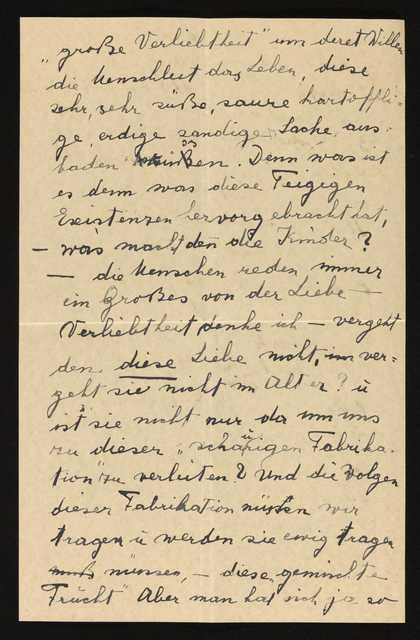 „große Verliebtheit" um deret Willen
die Menschleit das Leben, diese
sehr, sehr süße, saure kartoffli-
ge, erdige sandige Sache, aus-
baden müßen. Denn was ist
es denn was diese Teigigen
Existenzen hervorgebracht hat,
– was macht den die Kinder?
– die Menschen reden immer
ein Großes von der Liebe –
Verliebtheit denke ich – vergeht
den diese Liebe nicht, ver-
geht sie nicht im Alter? u
ist sie nicht nur da um uns
zu dieser „schäbigen Fabrika-
tion" zu verleiten? Und die Volgen
dieser Fabrikation müssen wir
tragen u werden sie ewig tragen
müssen, – diese „gemischte
Frücht" Aber man hat sich ja so